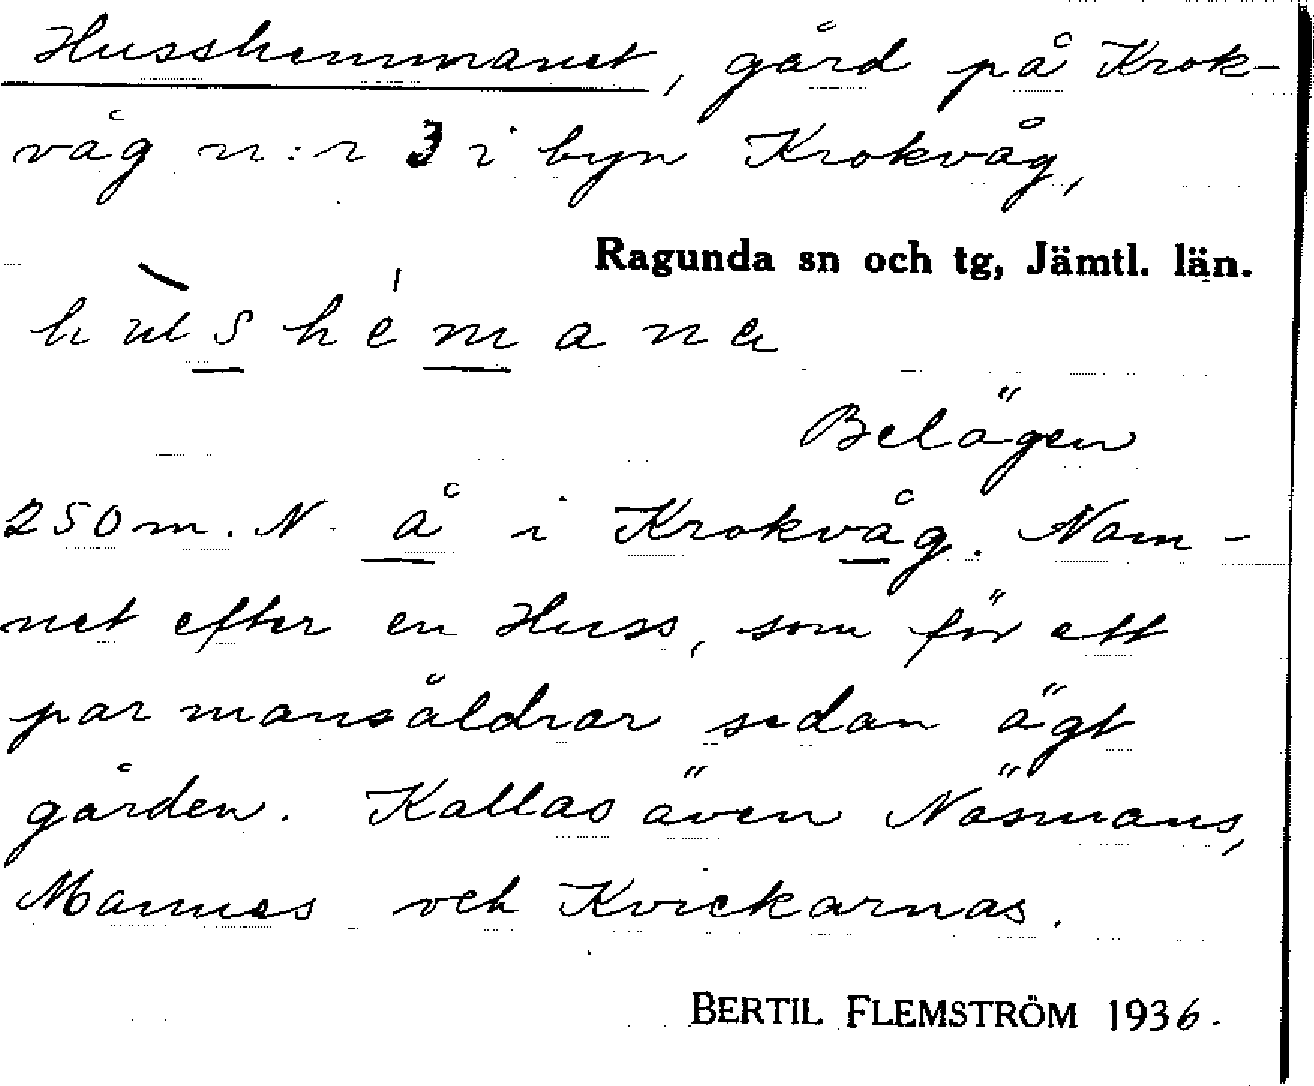 Husshemmanet, gård på Krok-
våg n:r 3 i byn Krokvåg,
Ragunda sn och tg, Jämtl. län.
Belägen
250 m. N. å i Krokvåg. Nam-
net efter en Huss, som för ett
par mansåldrar sedan ägt
gården. Kallas även Näsmans,
och Kvickarnas.
BERTIL FLEMSTRÖM 1936.